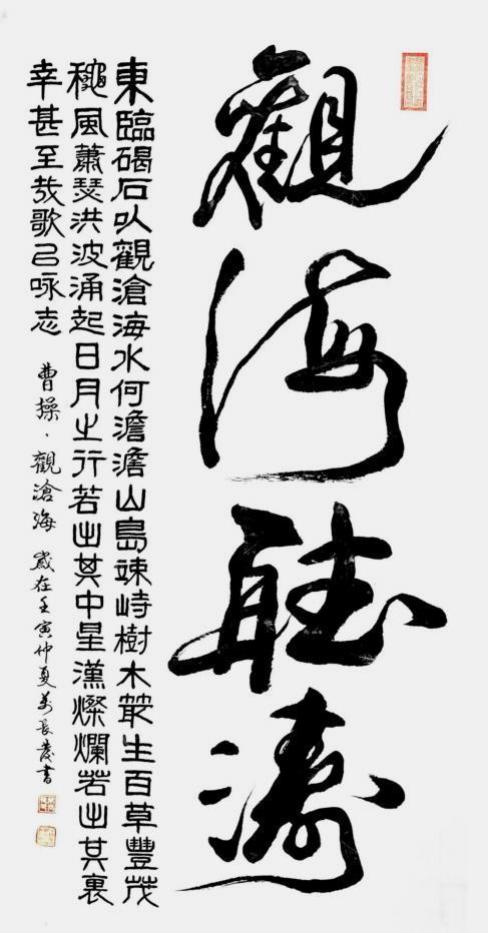 觀海聽濤
東臨碣石以觀滄海水何澹澹山島竦峙樹木叢生百草豐茂
穐風蕭瑟洪波涌起日月之行若出其中星漢燦爛若出其裏
幸甚至哉歌以咏志 曹操·觀滄海 歲在壬寅仲夏 書